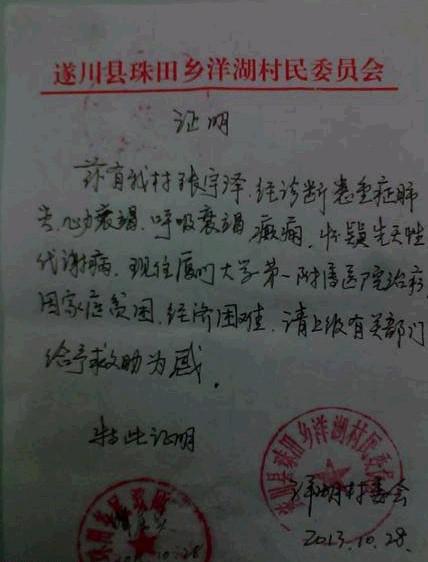 遂川县珠田乡洋湖村民委员会
证明
兹有我村张宇泽，经诊断患重症肺
炎，心力衰竭，呼吸衰竭，癫痫，怀疑先天性
代谢病，现住厦门大学第一附属医院治疗，
因家庭贫困，经济困难，请上级有关部门
给予救助为感。
特此证明
遂川县珠田乡洋湖村民委员会
洋湖村委会
2013.10.28
10.28